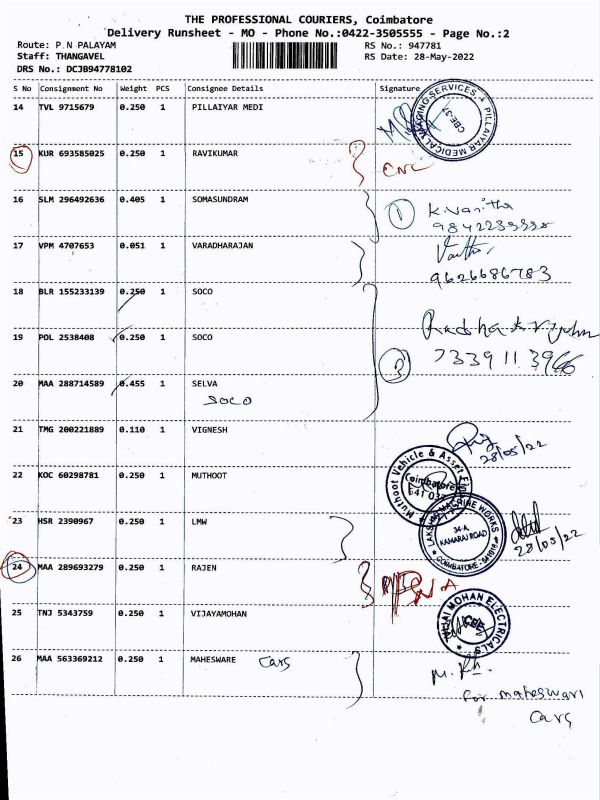 THE PROFESSIONAL COURIERS, Coimbatore
Delivery Runsheet - MO - Phone No.:0422-3505555 - Page No.:2
Route: P N PALAYAM RS No.: 947781
Staff: THANGAVEL RS Date: 28-May-2022
DRS No.: DCJB94778102
S No Consignment No Weight PCS Consignee Details Signature
14 TVL 9715679 0.250 1 PILLAIYAR MEDI
PILLAIYAR MEDICAL IMAGING SERVICES CBE-37
15 KUR 693585025 0.250 1 RAVIKUMAR
CNL
16 SLM 296492636 0.405 1 SOMASUNDRAM
1 K.Vanitha
17 VPM 4707653 0.051 1 VARADHARAJAN
9626686783
18 BLR 155233139 0.250 1 SOCO
Radhakrishnan
19 POL 2538408 0.250 1 SOCO
3 7339113966
20 MAA 288714589 0.455 1 SELVA
SOCO
21 TMG 200221889 0.110 1 VIGNESH
28/05/22
22 KOC 60298781 0.250 1 MUTHOOT
Muthoot Vehicle & Asset Coimbatore
23 HSR 2390967 0.250 1 LMW
LAKSHMI MACHINE WORKS 34-A, KAMARAJ ROAD COIMBATORE - 641018
28/05/22
24 MAA 289693279 0.250 1 RAJEN
25 TNJ 5343759 0.250 1 VIJAYAMOHAN
VIJAI MOHAN ELECTRICALS CBE
26 MAA 563369212 0.250 1 MAHESWARE Cars
for maheswari
Cars